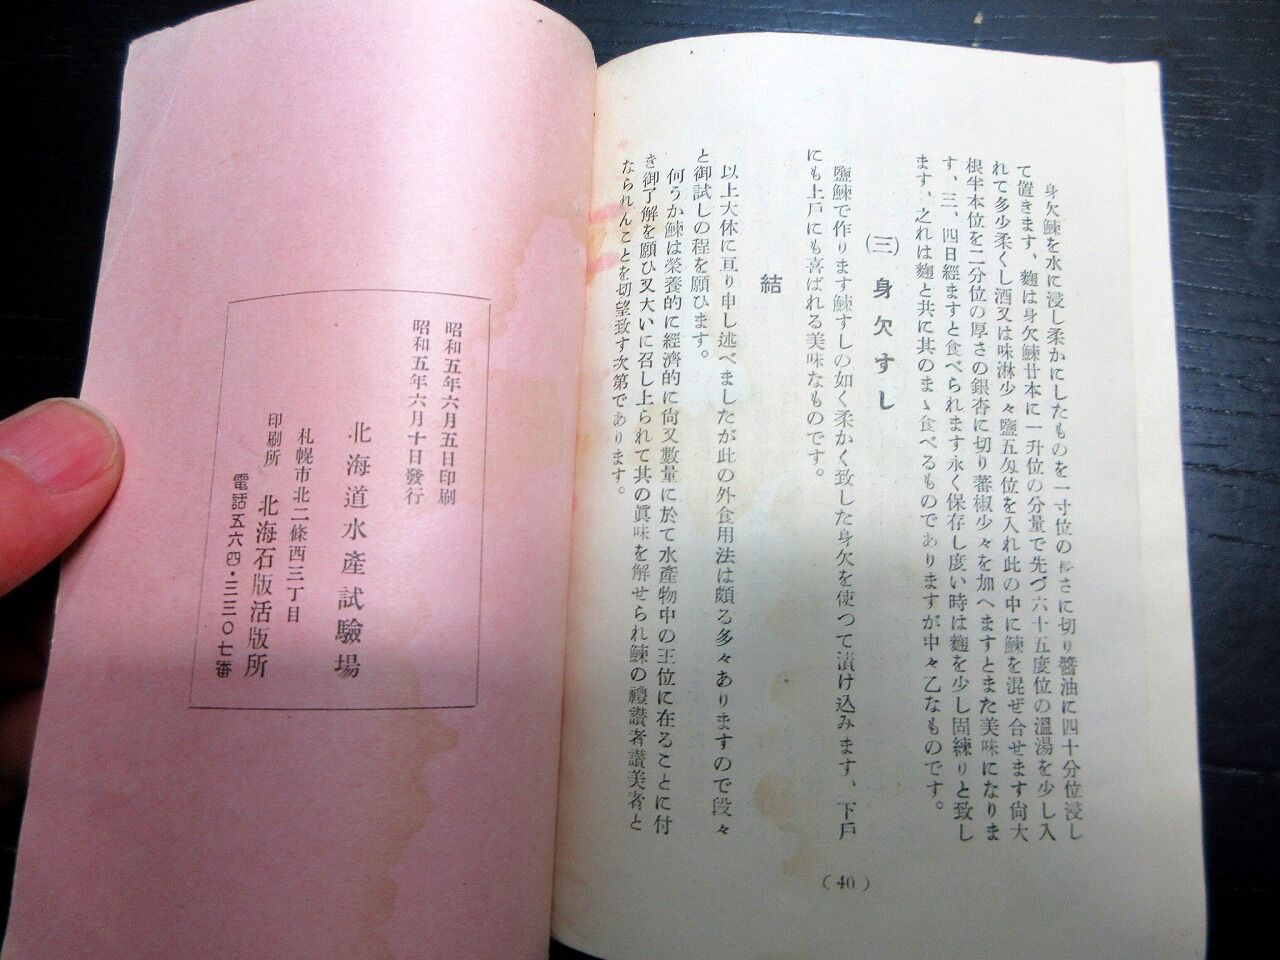 身欠鰊を水に浸し柔かにしたものを一寸位の厚さに切り醬油に四十分位浸し
て置きます、麴は身欠鰊廿本に一升位の分量で先づ六十五度位の溫湯を少し入
れて多少柔くし酒又は味淋少々鹽五匁位を入れ此の中に鰊を混ぜ合せます尙大
根半本位を二分位の厚さの銀杏に切り蕃椒少々を加へますとまた美味になりま
す、三、四日經ますと食べられます永く保存し度い時は麴を少し固練りと致し
ます、之れは麴と共に其のまゝ食べるものでありますが中々乙なものです。
(三)身欠すし
鹽鰊で作ります鰊すしの如く柔かく致した身欠を使つて漬け込みます、下戶
にも上戶にも喜ばれる美味なものです。
結
以上大体に亘り申し述べましたが此の外食用法は頗る多々ありますので段々
と御試しの程を願ひます。
何うか鰊は榮養的に經濟的に尙又數量に於て水產物中の王位に在ることに付
き御了解を願ひ又大いに召し上られて其の眞味を解せられ鰊の禮讃者讃美者と
なられんことを切望致す次第であります。
(40)
昭和五年六月五日印刷
昭和五年六月十日發行
北海道水產試驗場
札幌市北二條西三丁目
印刷所 北海石版活版所
電話五六四・三三〇七番